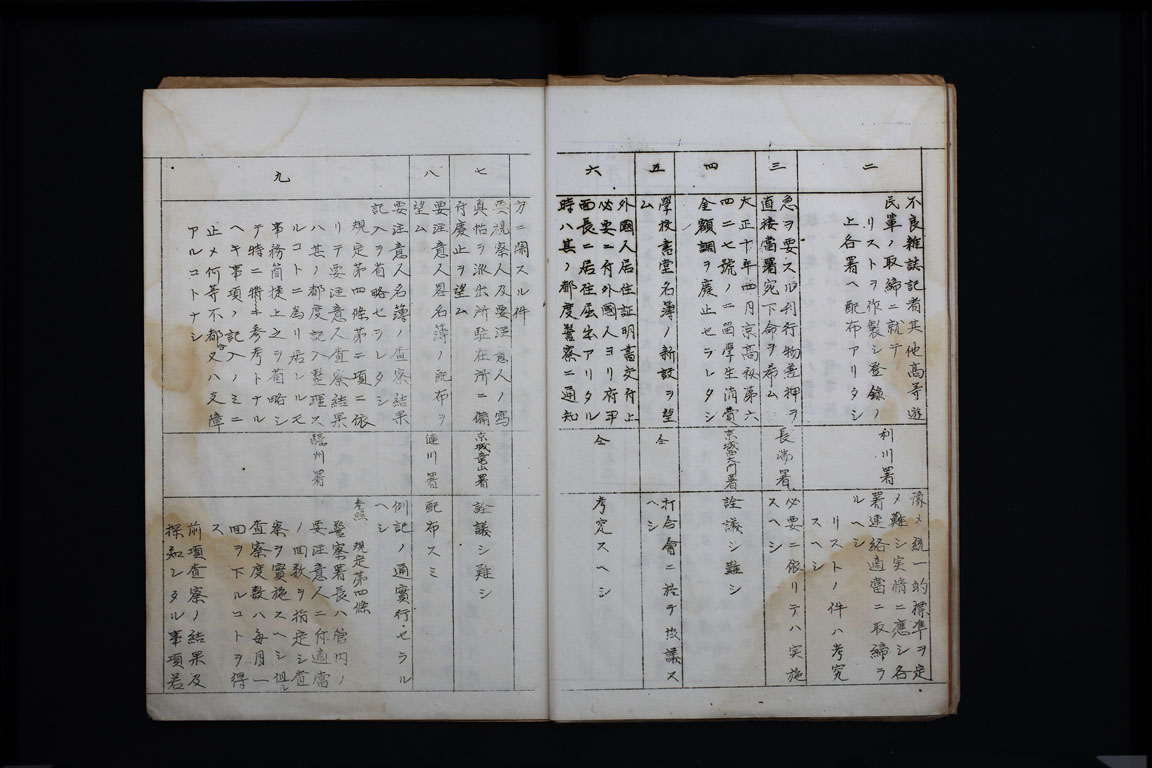 二
不良雑誌記者其他高等遊
民輩ノ取締ニ就テ
リストヲ作製シ登錄ノ
上各署ヘ配布アリタシ
利川署
豫メ統一的標準ヲ定
メ難シ実情ニ應シ各
署連絡適當ニ取締ヲ
ルヘシ
リストノ件ハ考究
スヘシ
三
急ヲ要スル刊行物差押ヲ
直接當署宛下命ヲ希ム
長湍署
必要ニ依リテハ実施
スヘシ
四
大正十年四月京高秘第六
四二七號ノ二留學生消費
金額調ヲ廢止セラレタシ
京城西大門署
詮議シ難シ
五
學校書堂名簿ノ新設ヲ望
ム
仝
打合會ニ於テ協議ス
ヘシ
六
外國人居住証明書交付上
必要ニ付外國人ヨリ府尹
面長ニ居住届出アリタル
時ハ其ノ都度警察ニ通知
仝
考究スヘシ
方ニ関スル件
七
要視察人及要注意人ノ寫
真帖ヲ派出所駐在所ニ備
付廢止ヲ望ム
京城龍山署
詮議シ難シ
八
要注意人畧名簿ノ配布ヲ
望ム
漣川署
配布スミ
九
要注意人名簿ノ査察結果
記入ヲ省略セラレタシ
規定第四條第二項ニ依
リテ要注意人査察結果
ハ其ノ都度記入整理ス
ルコトニ為リ居レルモ
事務簡捷上之ヲ省略シ
テ特ニ特キ参考トナル
ヘキ事項ノ記入ノミニ
止メ何等不都合又ハ支障
アルコトナシ
驪州署
例記ノ通實行セラル
ヘシ
参照 規定第四條
警察署長ハ管内ノ
要注意人ニ付適當
ノ回数ヲ指定シ査
察ヲ實施スヘシ但シ
査察度数ハ毎月一
回ヲ下ルコトヲ得
ス
前項査察ノ結果及
探知シタル事項若